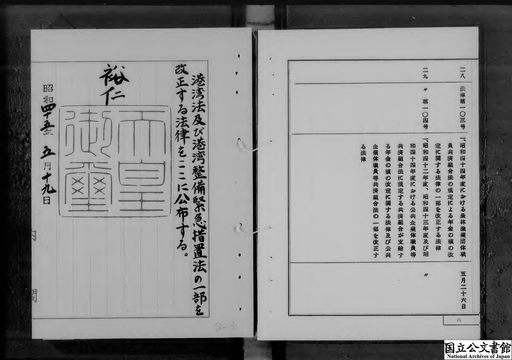 二八 法律第一〇三号
『昭和四十四年度における農林漁業団体職
員共済組合法の規定による年金の額の改
定に関する法律の一部を改正する法律
五月二十六日
二九 〃 第一〇四号
『昭和四十二年度、昭和四十三年度及び昭
和四十四年度における公共企業体職員等
共済組合法に規定する共済組合が支給す
る年金の額の改定に関する法律及び公共
企業体職員等共済組合法の一部を改正す
る法律
〃
港湾法及び港湾整備緊急措置法の一部を
改正する法律をここに公布する。
裕仁
天皇御璽
昭和四十五年五月十九日
国立公文書館
National Archives of Japan